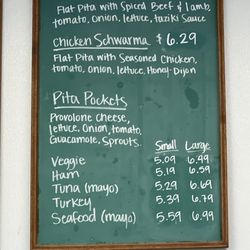 Flat Pita with Spiced Beef & lamb,
tomato, onion, lettuce, taziki Sauce
Chicken Schwarma $6.29
Flat Pita with Seasoned Chicken,
tomato, onion, lettuce, Honey-Dijon
Pita Pockets
Provolone Cheese,
lettuce, Onion, tomato,
Guacamole, Sprouts.
Small Large
Veggie 5.09 6.49
Ham 5.19 6.59
Tuna (mayo) 5.29 6.69
Turkey 5.39 6.79
Seafood (mayo) 5.59 6.99